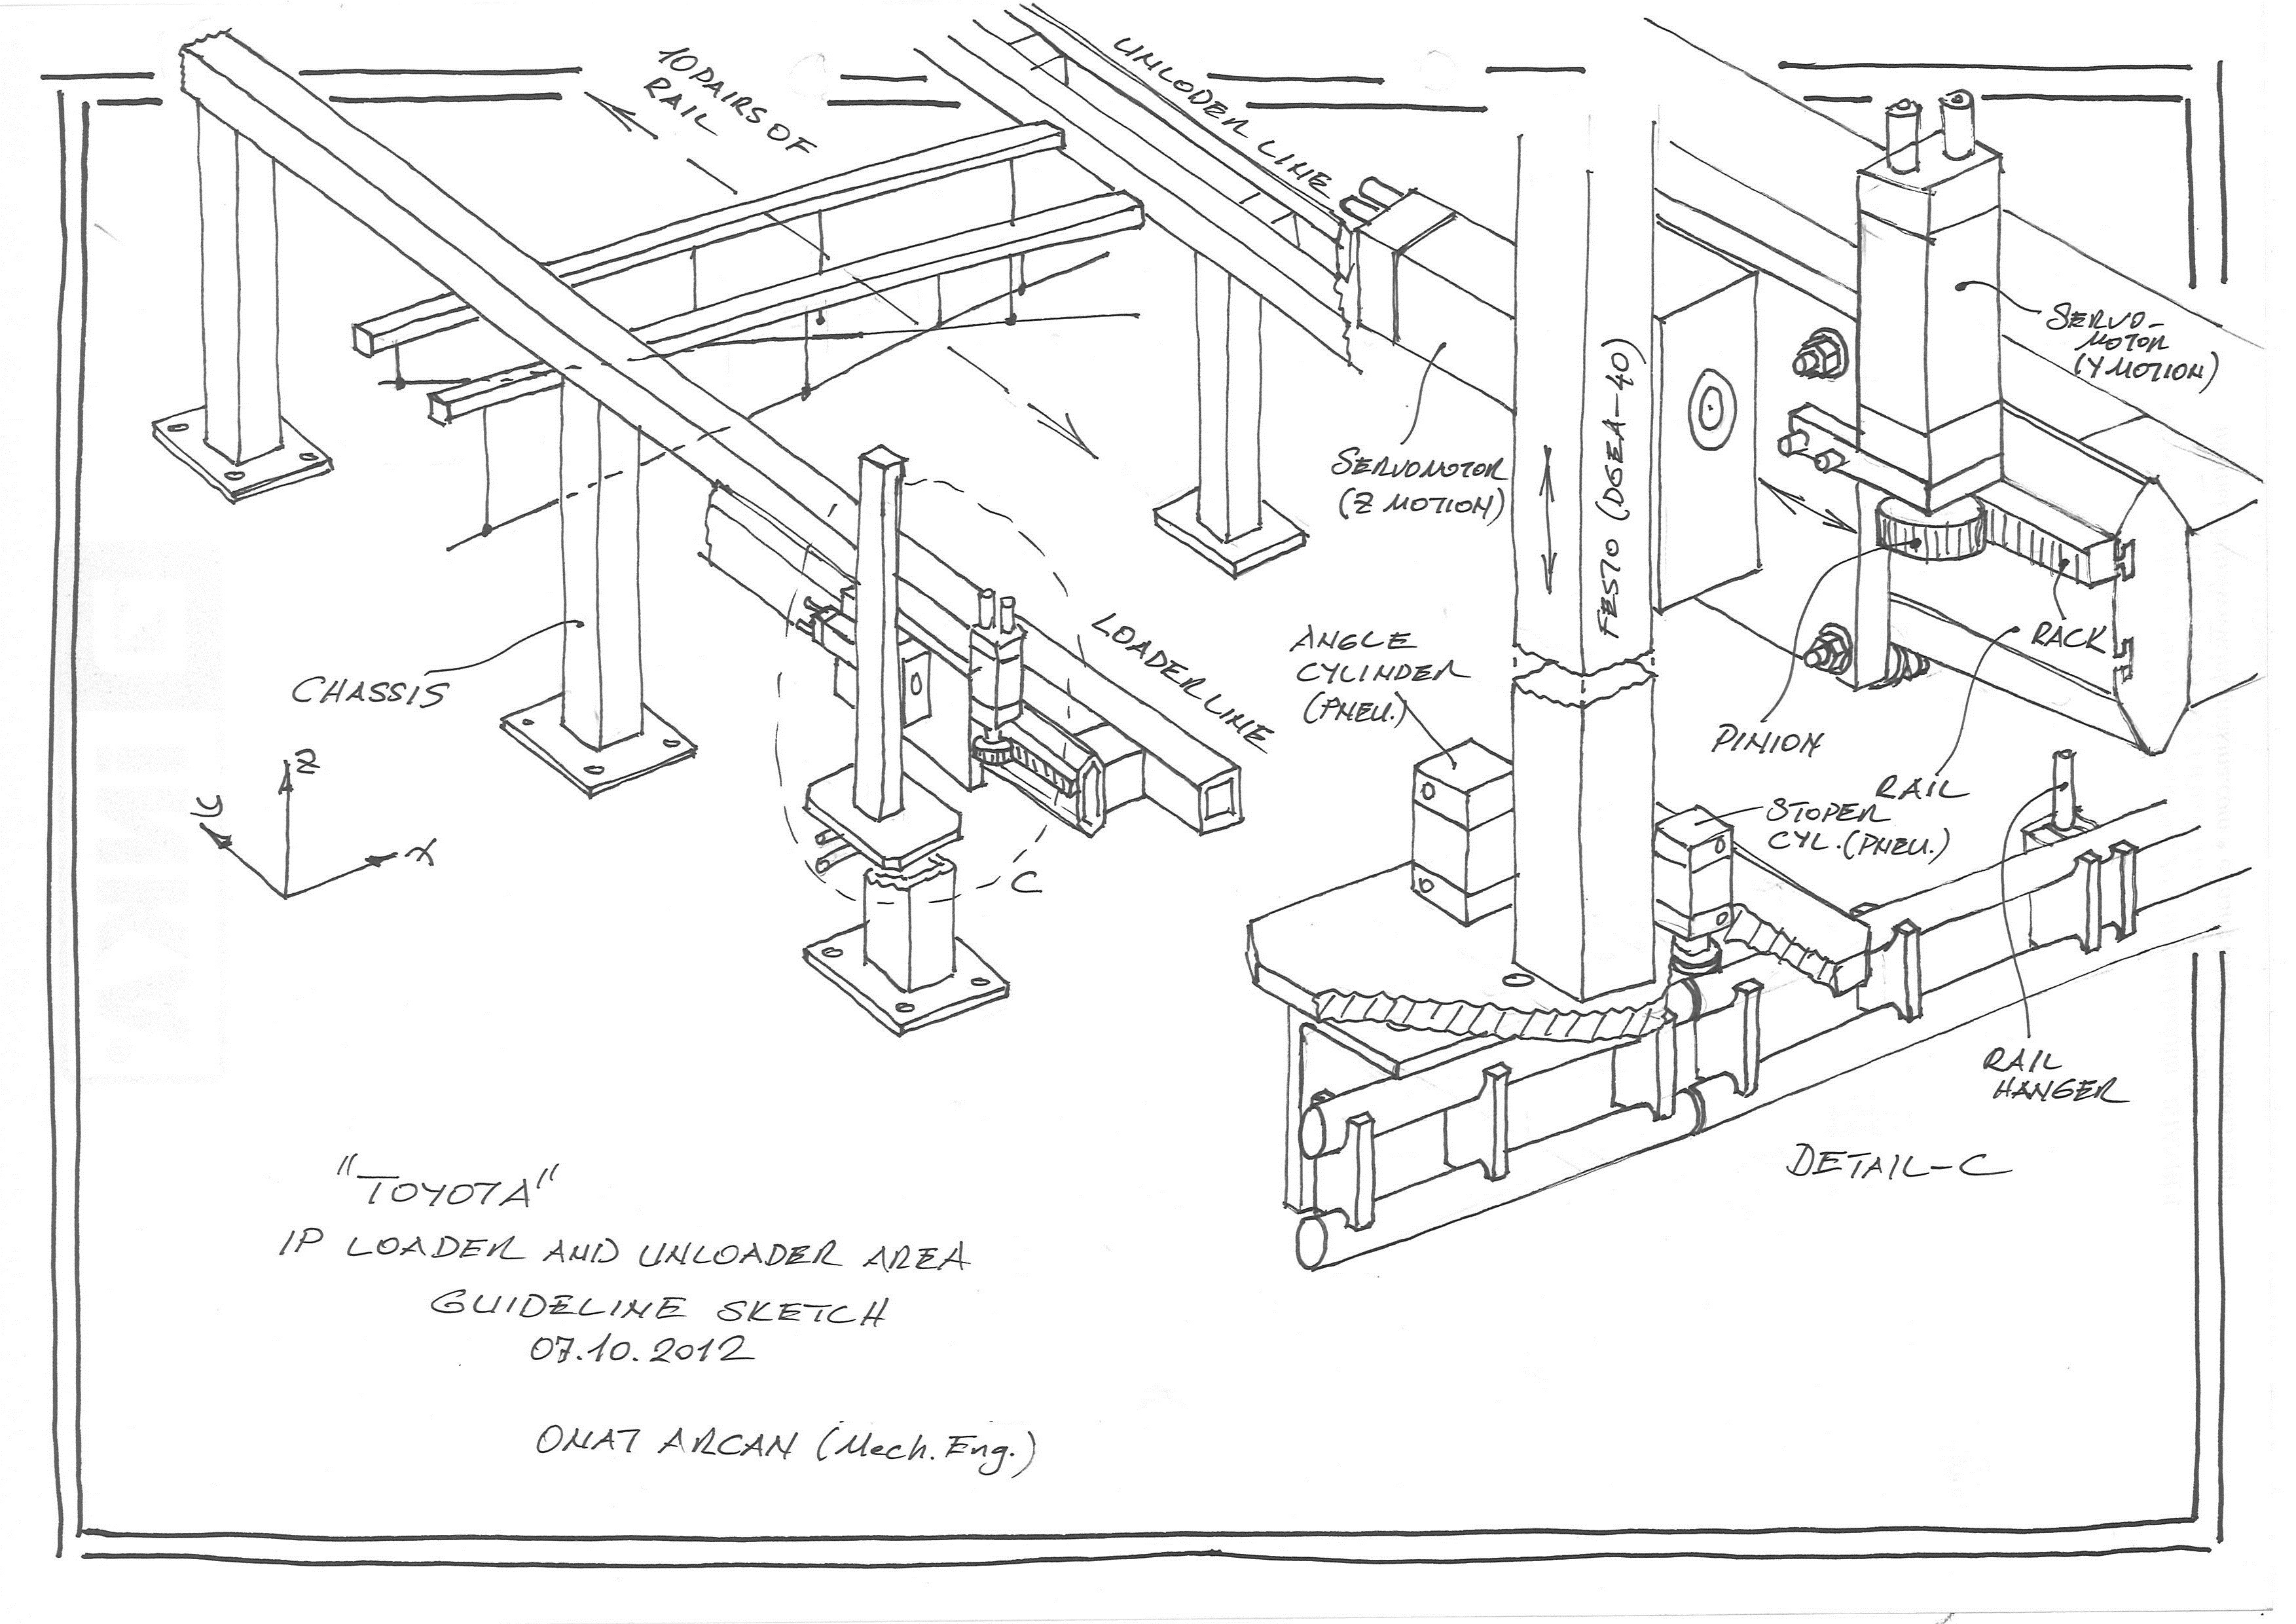 10 PAIRS OF
RAIL
UNLODER LINE
SERVO-
MOTOR
(Y MOTION)
SERVOMOTOR
(Z MOTION)
FESTO (DGEA-40)
RACK
PINION
RAIL
ANGLE
CYLINDER
(PNEU.)
STOPER
CYL. (PNEU.)
LOADER LINE
CHASSIS
Z
Y
X
C
RAIL
HANGER
DETAIL-C
"TOYOTA"
IP LOADER AND UNLOADER AREA
GUIDELINE SKETCH
07.10.2012
ONAT ARCAN (Mech. Eng.)